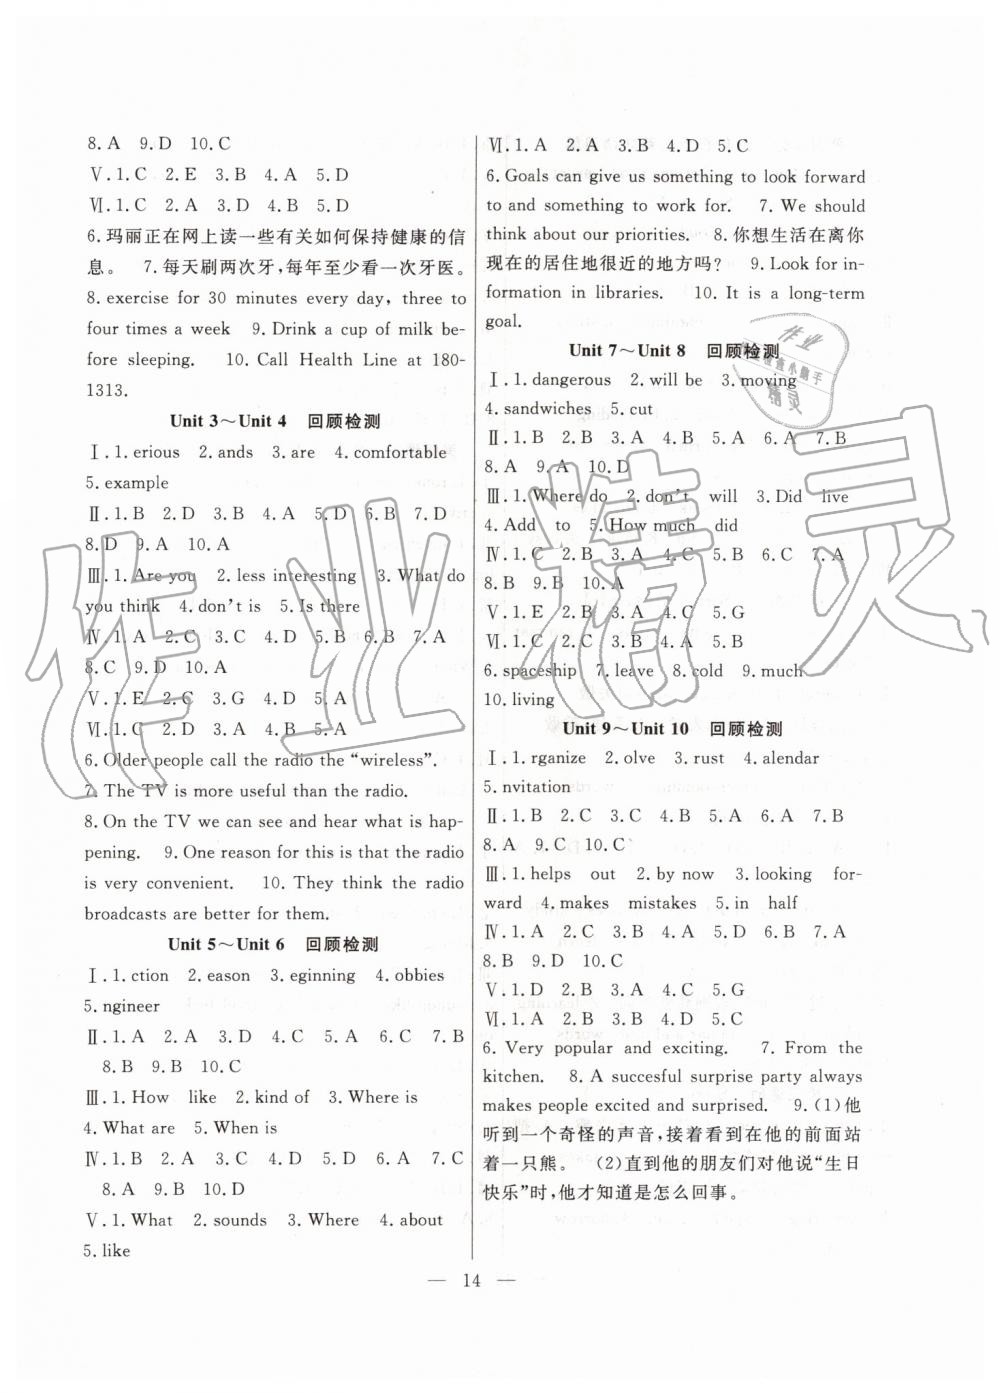 8. A 9. D 10. C
Ⅴ. 1. C 2. E 3. B 4. A 5. D
Ⅵ. 1. C 2. A 3. D 4. B 5. D
6. 玛丽正在网上读一些有关如何保持健康的信
息。 7. 每天刷两次牙，每年至少看一次牙医。
8. exercise for 30 minutes every day, three to
four times a week 9. Drink a cup of milk be-
fore sleeping. 10. Call Health Line at 180-
1313.
Unit 3～Unit 4 回顾检测
Ⅰ. 1. erious 2. ands 3. are 4. comfortable
5. example
Ⅱ. 1. B 2. D 3. B 4. A 5. D 6. B 7. D
8. D 9. A 10. A
Ⅲ. 1. Are you 2. less interesting 3. What do
you think 4. don't is 5. Is there
Ⅳ. 1. A 2. C 3. C 4. D 5. B 6. B 7. A
8. C 9. D 10. A
Ⅴ. 1. E 2. C 3. G 4. D 5. A
Ⅵ. 1. C 2. D 3. A 4. C 5. B
6. Older people call the radio the “wireless”.
7. The TV is more useful than the radio.
8. On the TV we can see and hear what is hap-
pening. 9. One reason for this is that the radio
is very convenient. 10. They think the radio
broadcasts are better for them.
Unit 5～Unit 6 回顾检测
Ⅰ. 1. ction 2. eason 3. eginning 4. obbies
5. ngineer
Ⅱ. 1. A 2. A 3. D 4. C 5. A 6. C 7. B
8. B 9. B 10. C
Ⅲ. 1. How like 2. kind of 3. Where is
4. What are 5. When is
Ⅳ. 1. B 2. A 3. D 4. C 5. D 6. A 7. C
8. A 9. B 10. D
Ⅴ. 1. What 2. sounds 3. Where 4. about
5. like
Ⅵ. 1. A 2. A 3. B 4. D 5. C
6. Goals can give us something to look forward
to and something to work for. 7. We should
think about our priorities. 8. 你想生活在离你
现在的居住地很近的地方吗? 9. Look for in-
formation in libraries. 10. It is a long-term
goal.
Unit 7～Unit 8 回顾检测
Ⅰ. 1. dangerous 2. will be 3. moving
4. sandwiches 5. cut
Ⅱ. 1. B 2. B 3. A 4. B 5. A 6. A 7. B
8. A 9. A 10. D
Ⅲ. 1. Where do 2. don't will 3. Did live
4. Add to 5. How much did
Ⅳ. 1. C 2. B 3. A 4. C 5. B 6. C 7. A
8. B 9. B 10. A
Ⅴ. 1. E 2. B 3. A 4. C 5. G
Ⅵ. 1. C 2. C 3. B 4. A 5. B
6. spaceship 7. leave 8. cold 9. much
10. living
Unit 9～Unit 10 回顾检测
Ⅰ. 1. rganize 2. olve 3. rust 4. alendar
5. nvitation
Ⅱ. 1. B 2. C 3. C 4. B 5. A 6. A 7. B
8. A 9. C 10. C
Ⅲ. 1. helps out 2. by now 3. looking for-
ward 4. makes mistakes 5. in half
Ⅳ. 1. C 2. B 3. A 4. A 5. D 6. D 7. A
8. B 9. D 10. C
Ⅴ. 1. D 2. B 3. C 4. A 5. G
Ⅵ. 1. A 2. B 3. B 4. D 5. C
6. Very popular and exciting. 7. From the
kitchen. 8. A succesful surprise party always
makes people excited and surprised. 9. (1)他
听到一个奇怪的声音，接着看到在他的前面站
着一只熊。 (2)直到他的朋友们对他说“生日
快乐”时，他才知道是怎么回事。
— 14 —
作业精灵